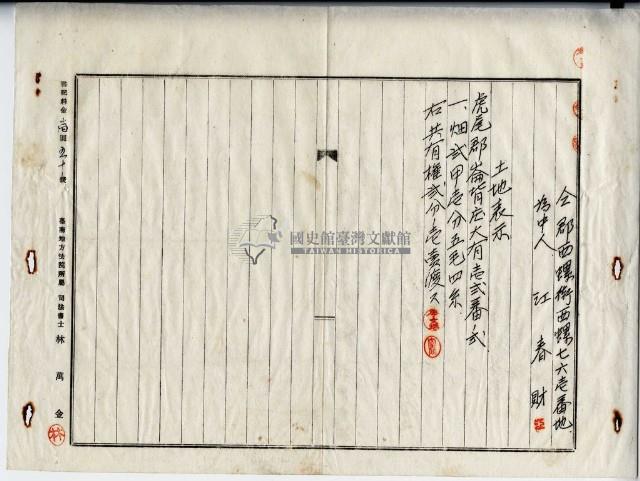 仝郡西螺街西螺七六壱番地
為中人 江春財
土地表示
虎尾郡崙背庄大有壱弍番ノ弍
一、畑弍甲壱分五毛四糸
右共有權弍分ノ壱賣渡ス
國史館臺灣文獻館
TAIWAN HISTORICA
書記料金 圓五十錢
臺南地方法院所屬 司法書士 林萬金
林